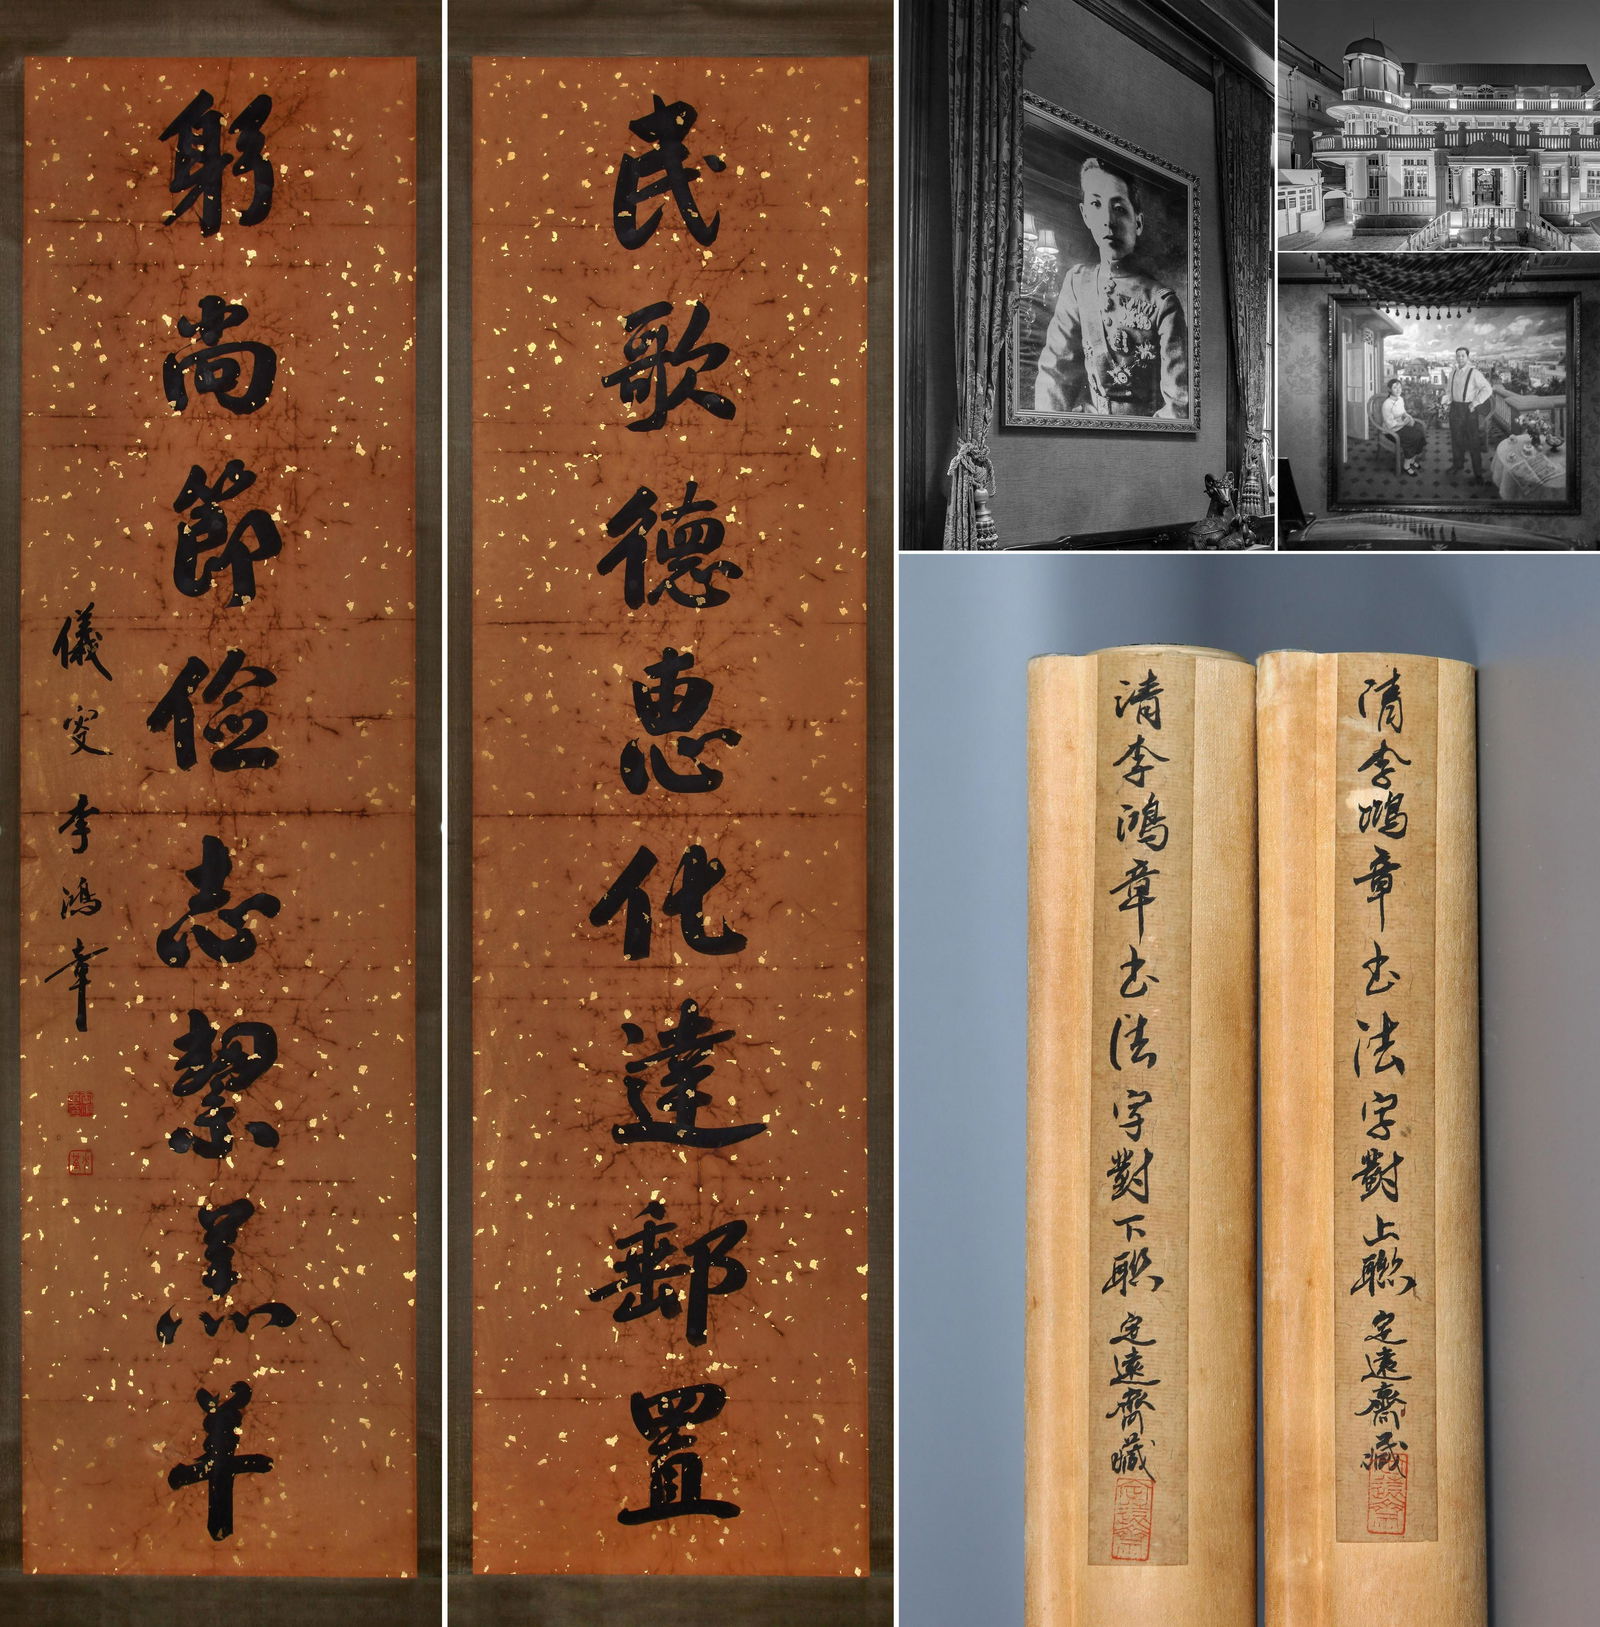 民歌德惠化達郵置
躬尚節儉志絜羔羊
儀叟李鴻章
清李鴻章書法字對上聯 定遠齋藏
清李鴻章書法字對下聯 定遠齋藏